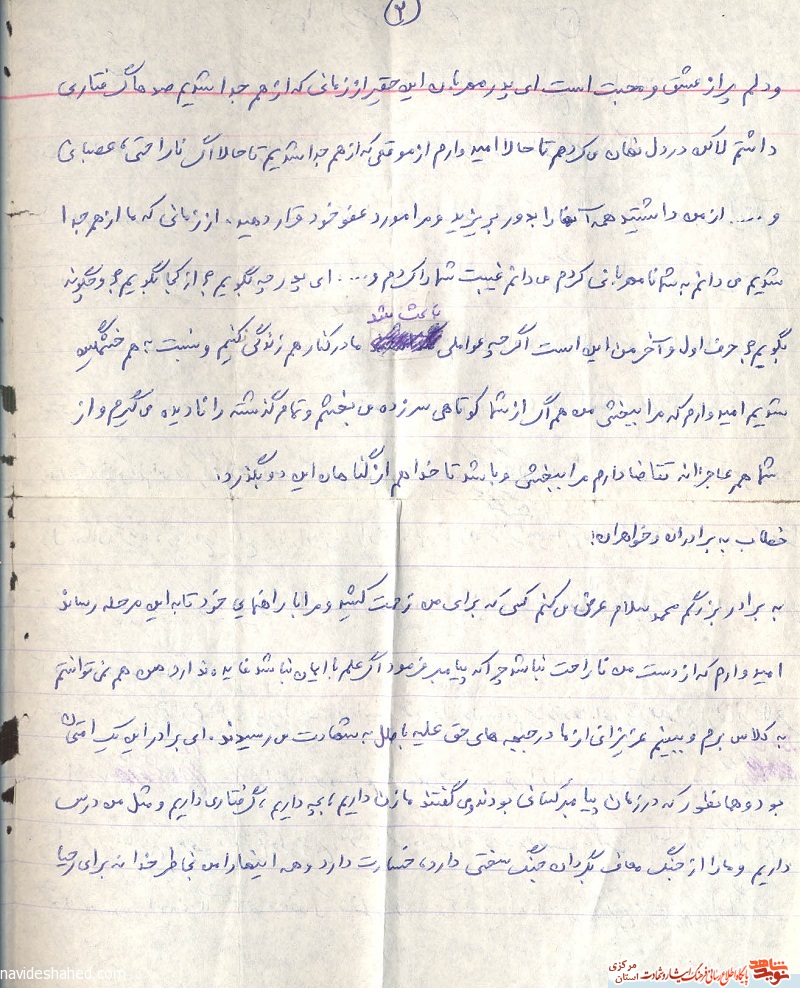 ۲
و دلم پر از عشق و محبت است ای پدر مهربان این حقیر از زمانی که از هم جدا شدیم صدها گرفتاری
داشتم لاکن در دل نهان می‌کردم تا حالا امیدوارم از موقعی که از هم جدا شدیم تا حالا اگر ناراحتی، عصبانی
و .... از من داشتید همه آنها را بدور بریزید و مرا مورد عفو خود قرار دهید. از زمانی که ما از هم جدا
شدیم می‌دانم به شما نامهربانی کردم می‌دانم غیبت شما را کردم و .... ای پدر چه بگویم؟ از کجا بگویم؟ و چگونه
باعث شد
بگویم؟ حرف اول و آخر من این است اگر چه عواملی ما در کنار هم زندگی نکنیم و نسبت به هم خشمگین
شدیم امیدوارم که مرا ببخشی من هم اگر از شما کوتاهی سر زده می‌بخشم و تمام گذشته را نادیده می‌گیرم و از
شما هم عاجزانه تقاضا دارم مرا ببخشی و باشد تا خدا هم از گناهان این دو بگذرد.
خطاب به برادران و خواهران!
به برادر بزرگم محمد سلام عرض می‌کنم کسی که برای من زحمت کشید و مرا با راهنمایی خود تا به این مرحله رساند
امیدوارم که از دست من ناراحت نباشد چرا که پیامبر فرمود اگر علم با ایمان نباشد فایده ندارد من هم نمی‌توانستم
به کلاس برم و ببینم عزیزانی از ما در جبهه های حق علیه باطل به شهادت می رسیدند. ای برادر این یک امتحان
بود و همانطور که در زمان پیامبر کسانی بودند می‌گفتند ما زن داریم، بچه داریم، گرفتاری داریم و مثل من درس
داریم و ما را از جنگ معاف بگردان جنگ سختی دارد، خسارت دارد و همه اینها را من بخاطر خدا نه برای ریا
navideshahed.com
نوید شاهد
پایگاه اطلاع رسانی فرهنگ ایثار و شهادت
استان مرکزی